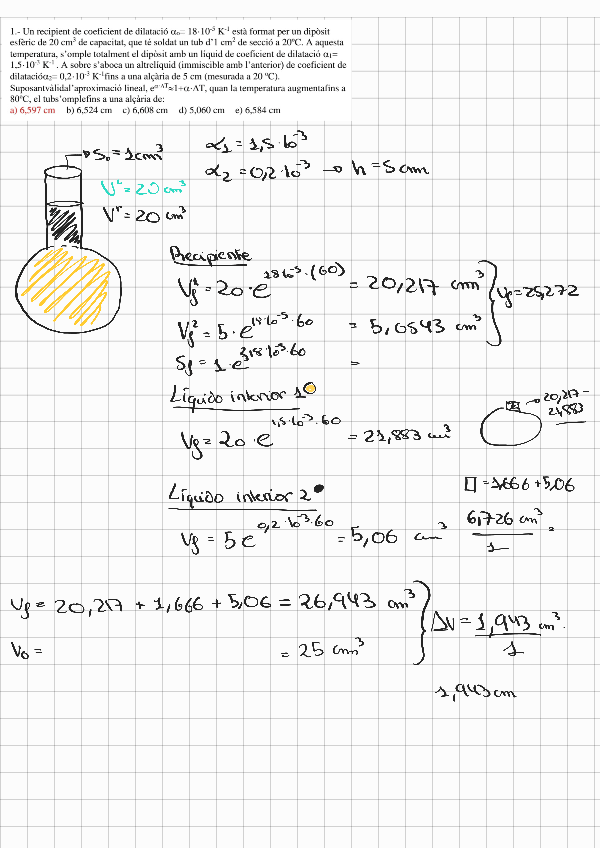 1.- Un recipient de coeficient de dilatació α₀= 18·10⁻⁵ K⁻¹ està format per un dipòsit
esfèric de 20 cm³ de capacitat, que té soldat un tub d'1 cm² de secció a 20ºC. A aquesta
temperatura, s'omple totalment el dipòsit amb un líquid de coeficient de dilatació α₁=
1,5·10⁻³ K⁻¹ . A sobre s'aboca un altrelíquid (immiscible amb l'anterior) de coeficient de
dilatacióα₂= 0,2·10⁻³ K⁻¹fins a una alçària de 5 cm (mesurada a 20 ºC).
Suposantvàlidal'aproximació lineal, e^(α·ΔT)≈1+α·ΔT, quan la temperatura augmentafins a
80ºC, el tubs'omplefins a una alçària de:
a) 6,597 cm b) 6,524 cm c) 6,608 cm d) 5,060 cm e) 6,584 cm
S₀ = 1cm³
α₁ = 1,5·10⁻³
α₂ = 0,2·10⁻³ → h = 5 cm
V^L = 20 cm³
V^r = 20 cm³
Recipiente
V_f¹ = 20·e^(18·10⁻⁵·(60)) = 20,217 cm³
V_f = 25,272
V_f² = 5·e^(18·10⁻⁵·60) = 5,0543 cm³
S_f = 1·e^(18·10⁻⁵·60) =
Líquido interior 1
→ 20,217 -
21,883
V_f = 20·e^(1,5·10⁻³·60) = 21,883 cm³
= 1,666 + 5,06
Líquido interior 2
V_f = 5e^(0,2·10⁻³·60) = 5,06 cm³
6,726 cm³ =
1
V_f = 20,217 + 1,666 + 5,06 = 26,943 cm³
ΔV = 1,943 cm³.
1
V₀ = = 25 cm³
1,943 cm